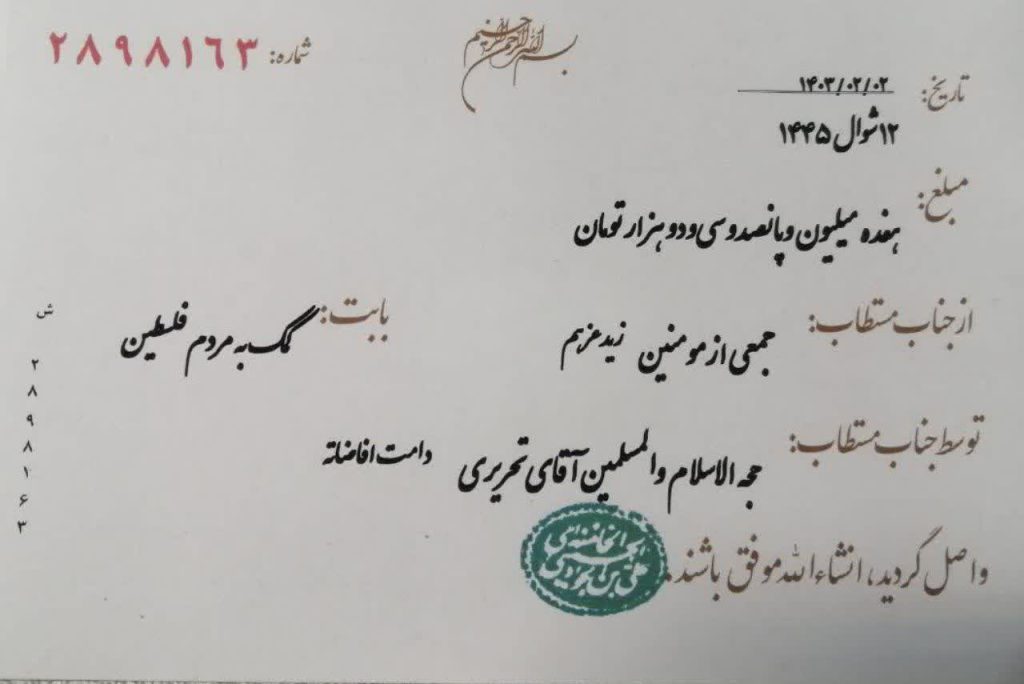 بسم الله الرحمن الرحیم
شماره: ۲۸۹۸۱۶۳
تاریخ: ۱۴۰۳/۰۲/۰۲
۱۲ شوال ۱۴۴۵
مبلغ: هفده میلیون و پانصد و سی و دو هزار تومان
از جناب مستطاب: جمعی از مومنین زید عزهم
بابت: کمک به مردم فلسطین
توسط جناب مستطاب: حجه الاسلام والمسلمین آقای تحریری دامت افاضاته
واصل گردید، انشاءالله موفق باشند.
ش
۲
۸
۹
۸
۱
۶
۳